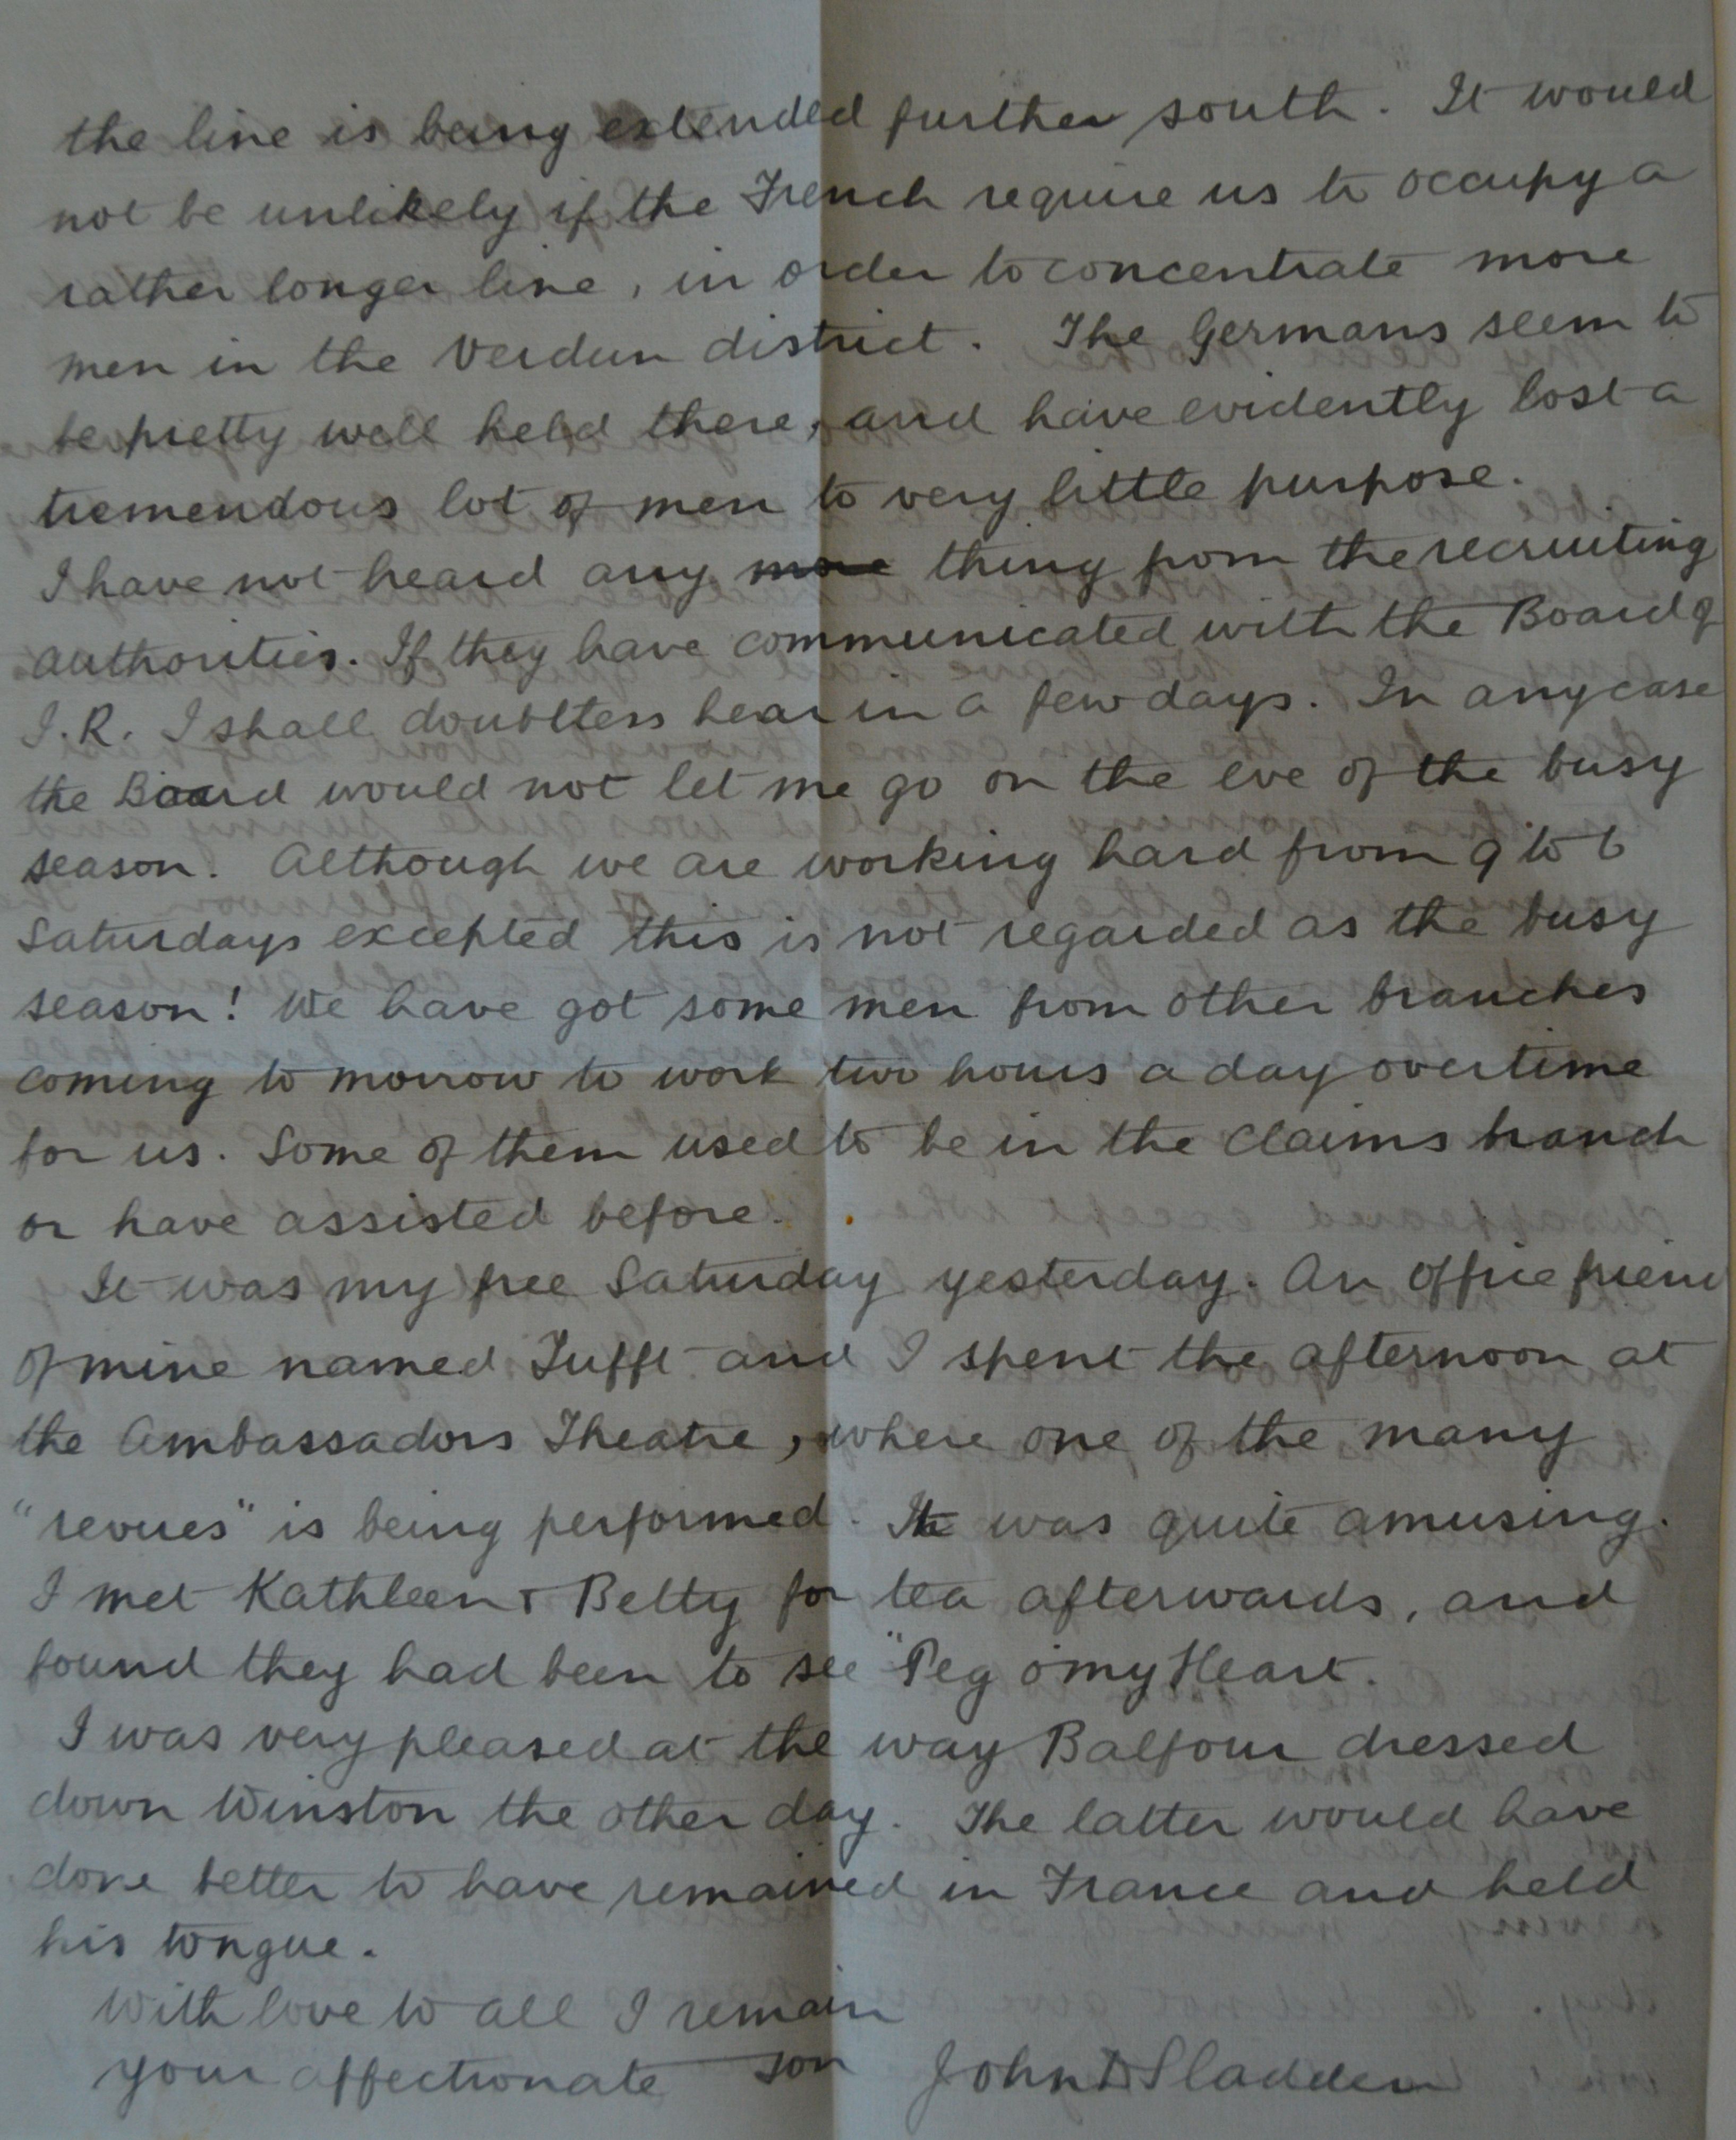 the line is being extended further south." It would
not be unlikely if the French require us to occupy a
rather longer line, in order to concentrate more
men in the Verdun district. The Germans seem to
be pretty well held there, and have evidently lost a
tremendous lot of men to very little purpose.
I have not heard any more thing from the recruiting
authorities. If they have communicated with the Board of
I.R. I shall doubtless hear in a few days. In any case
the Board would not let me go on the eve of the busy
season. Although we are working hard from 9 to 6
Saturdays excepted this is not regarded as the busy
season! We have got some men from other branches
coming to morrow to work two hours a day overtime
for us. Some of them used to be in the Claims branch
or have assisted before.
It was my free Saturday yesterday. An office friend
of mine named Tufft and I spent the afternoon at
the Ambassadors Theatre, where one of the many
"revues" is being performed. It was quite amusing.
I met Kathleen & Betty for tea afterwards, and
found they had been to see "Peg o my Heart.
I was very pleased at the way Balfour dressed
down Winston the other day. The latter would have
done better to have remained in France and held
his tongue.
With love to all I remain
your affectionate son John D Sladden